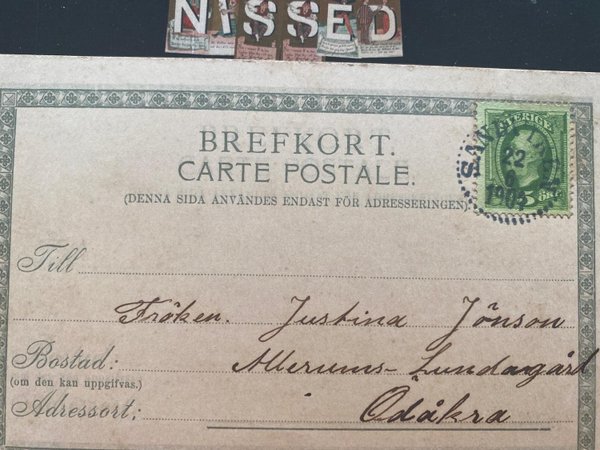 NISSED
BREFKORT.
CARTE POSTALE.
(DENNA SIDA ANVÄNDES ENDAST FÖR ADRESSERINGEN).
SVERIGE
22
5 ÖRE
Till
Fröken. Justina Jönson
Bostad: Allerums-Lundagård
(om den kan uppgifvas.)
Adressort: Ödåkra